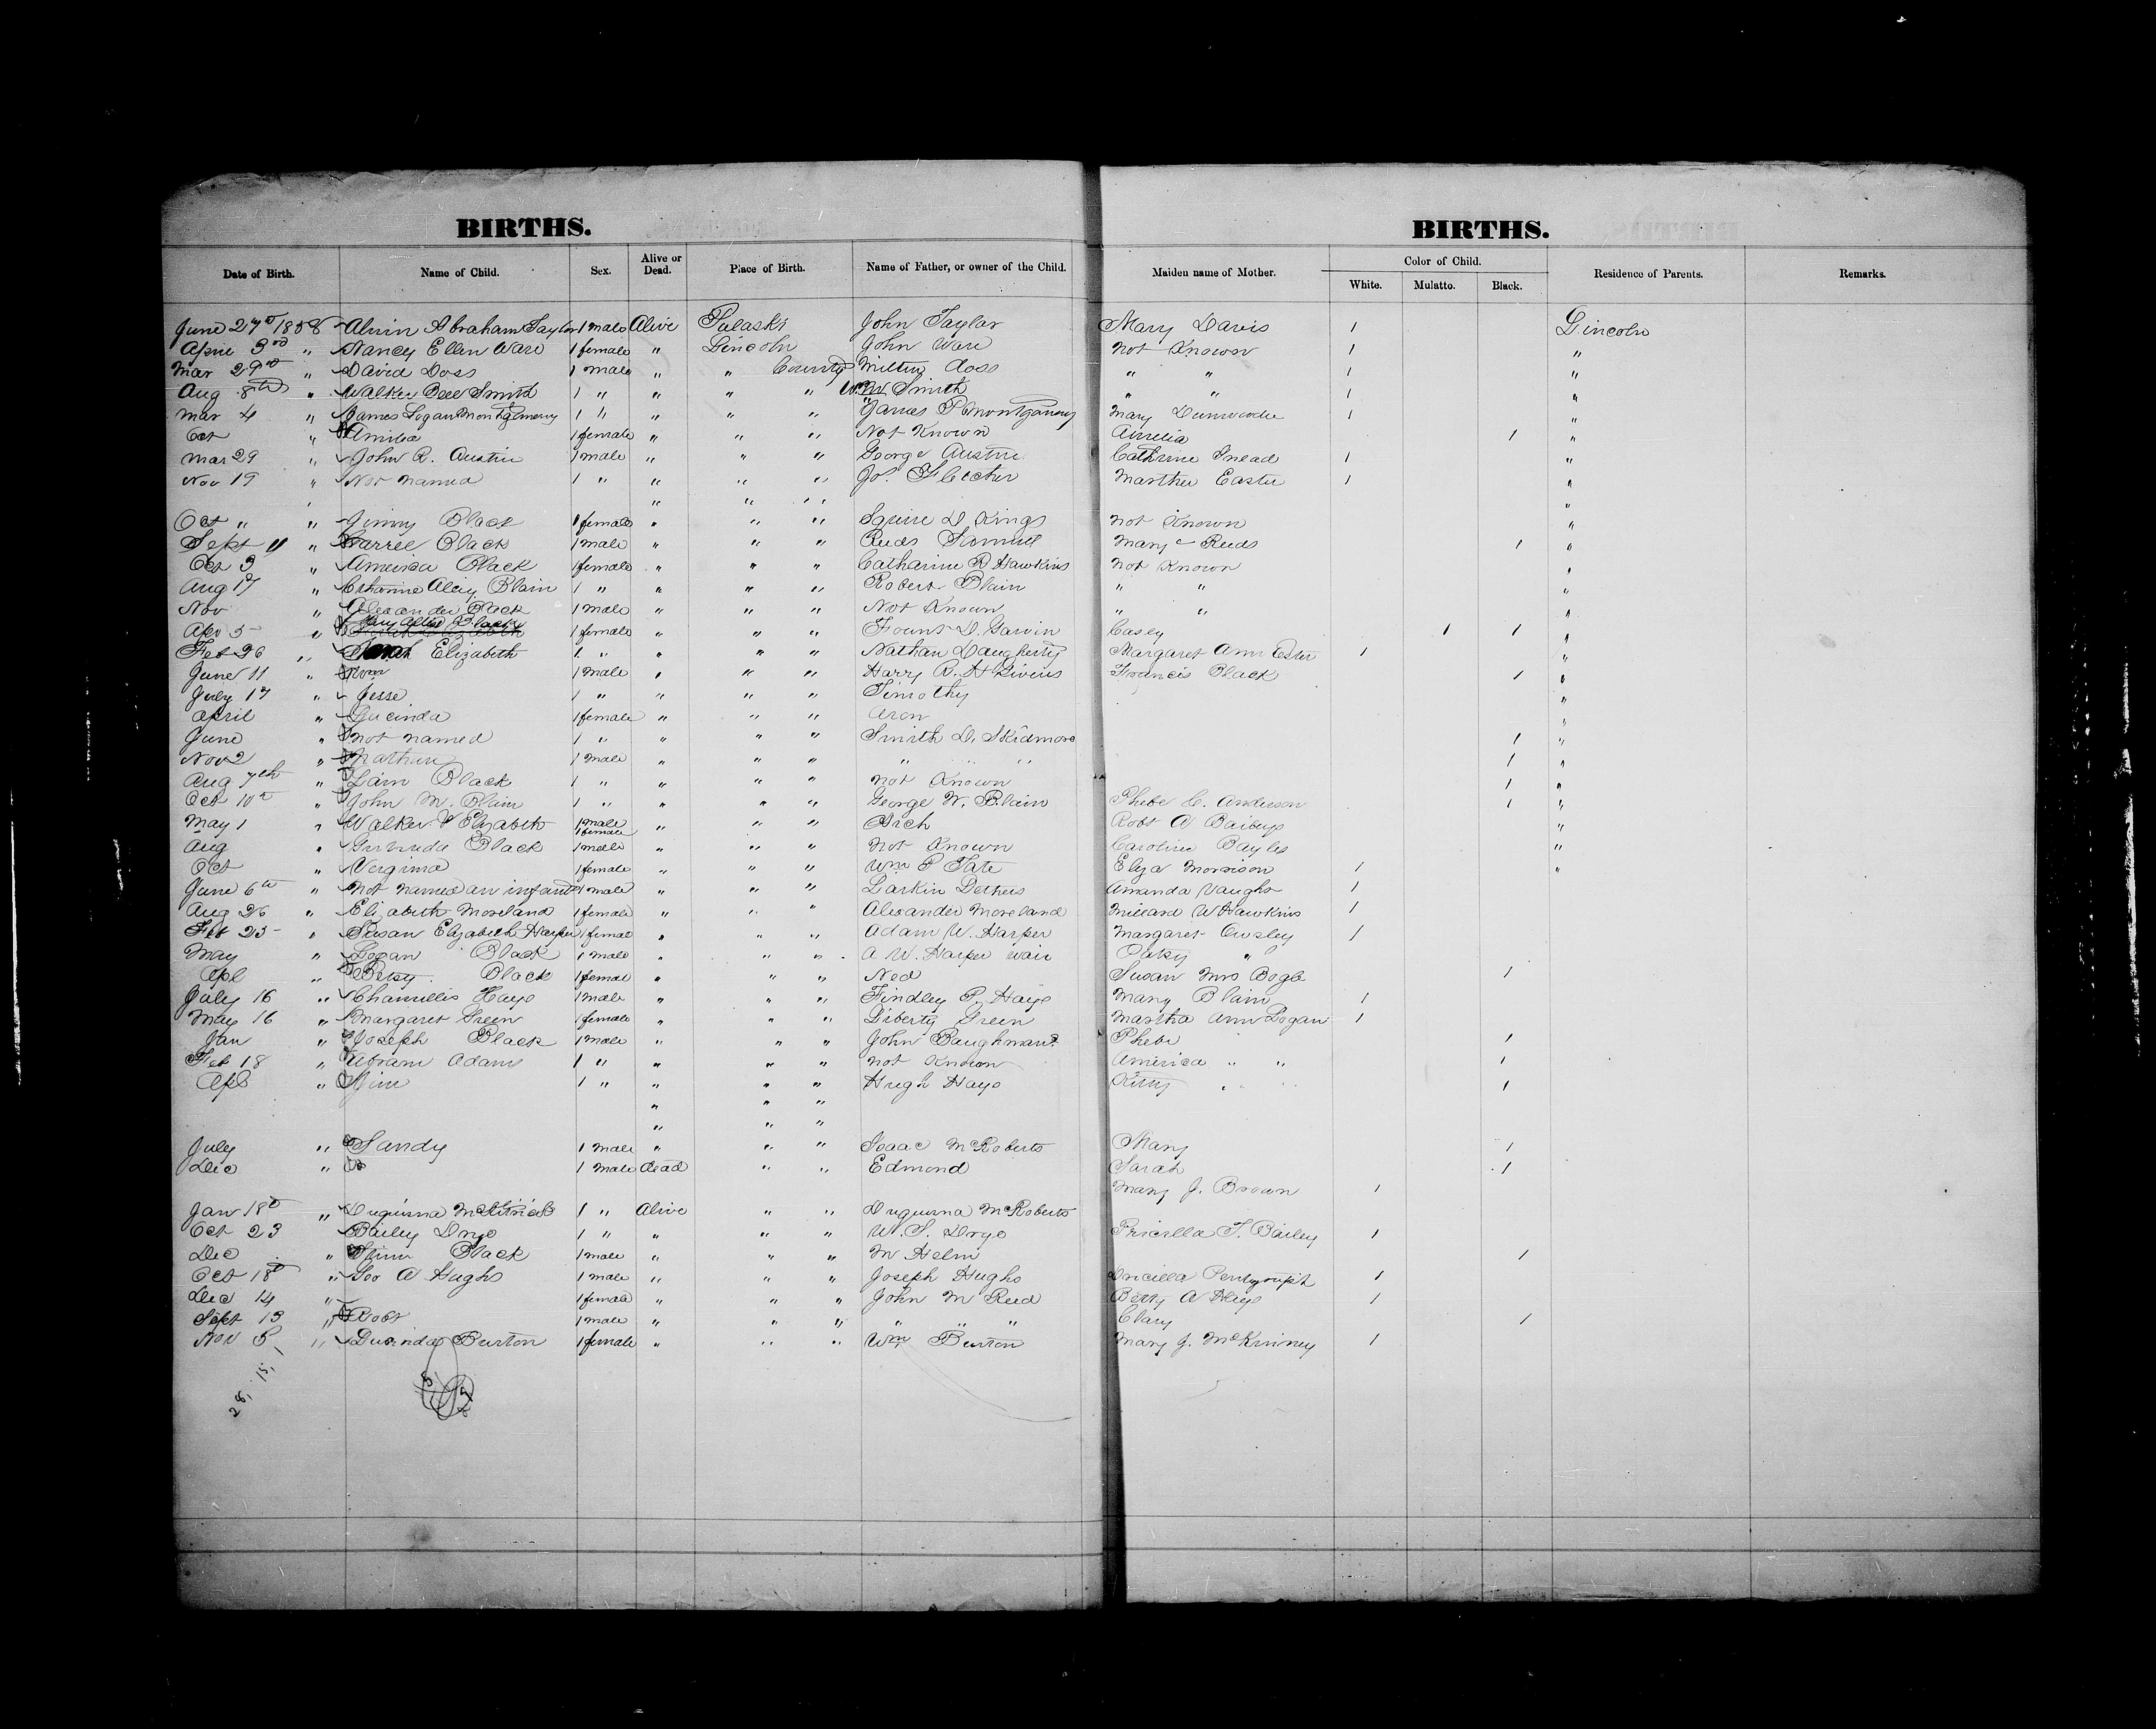 BIRTHS. BIRTHS.
Date of Birth. Name of Child. Sex. Alive or Dead. Place of Birth. Name of Father, or owner of the Child. Maiden name of Mother. Color of Child. White. Mulatto. Black. Residence of Parents. Remarks.
June 27th 1858 Alvin Abraham Taylor 1 male Alive Pulaski John Taylor Mary Davis 1 Lincoln
April 3rd " Nancy Ellen Ware 1 female " Lincoln John Ware not Known 1 "
Mar 29th " David Doss 1 male " " County Milton doss " " 1 "
Aug 8th " Walker Bell Smith 1 " " " " Wm Smith " " 1 "
Mar 4 " James Logan Montgomery 1 " " " " James P Montgomery Mary 1 "
Oct " 1 female " " " Not Known Amelia 1 "
Mar 29 " John R. Austin 1 male " " " George Austin Cathrine Snead 1 "
Nov 19 " Not named 1 " " " " Jo. Fletcher Marthu Easter 1 "
" " " " "
Oct " " Jinny Black 1 female " " " Squire D Kings not Known "
Sept 11 " Black 1 male " " " Samuel Mary Reeds 1 "
Oct 3 " America Black 1 female " " " Catharine R Hawkins not Known "
Aug 17 " Blain 1 " " " " Robert Blain " " "
Nov " Alexander Black 1 male " " " Not Known " " "
Apr 5 " Mary Black 1 female " " " D. Garvin Casey 1 1 "
Feb 26 " Sarah Elizabeth 1 " " " " Nathan Daugherty Margaret Ann Ester 1 "
June 11 " 1 male " " " Harry Francis Black 1 "
July 17 " Jesse 1 " " " " Timothy "
April " Lucinda 1 female " " " Aron "
June " not named 1 " " " " Smith D. Skidmore 1 "
Nov 2 " 1 male " " " " " " 1 "
Aug 7th " Black 1 " " " " not Known 1 "
Oct 10th " John M. Blain 1 " " " " George W. Blain Phebe C. Anderson 1 "
May 1 " Walker & Elizabeth 1 male 1 female " " " Arch Robt A "
Aug " Black 1 male " " " Not Known Caroline Bayles "
Oct " Vergina 1 female " " " Wm P Tate Eliza Morrison 1 "
June 6th " Not named an infant 1 male " " " Larkin Amanda Vaughn 1
Aug 26 " Elizabeth Moreland 1 female " " " Alexander Moreland W Hawkins 1
Feb 25 " Susan Elizabeth Harper 1 femal " " " Adam W. Harper Margaret Owsley 1
May " Logan Black 1 male " " " A W. Harper "
Apl " Black 1 femal " " " Ned Susan Mrs Bogle 1
July 16 " Hays 1 male " " " Findley P. Hays Mary Blain 1
May 16 " Margaret Green 1 female " " " Liberty Green Martha Ann Logan 1
Jan " Joseph Black 1 male " " " John Baughman Phebe 1
Feb 18 " Abram Adams 1 " " " " not Known America " " 1
Apl " Jim 1 " " " " Hugh Hays Kitty " " 1
" " "
" " "
July " Sandy 1 male " " " Isaac McRoberts Mary 1
Dec " 1 male dead " " Edmond Sarah 1
Mary J. Brown 1
Jan 18th " 1 " Alive " " McRoberts
Oct 23 " Bailey 1 " " " " W. S. Pricilla T. Bailey 1
Dec " Black 1 male " " " M Helm 1
Oct 18th " Geo A Hughs 1 male " " " Joseph Hughs 1
Dec 14 " 1 female " " " John M Reed Betty A Hays 1
Sept 13 " Robt 1 male " " " " " " Clary 1
Nov 8 " Burton 1 female " " " Wm Burton Mary J. McKinney 1
28, 15,